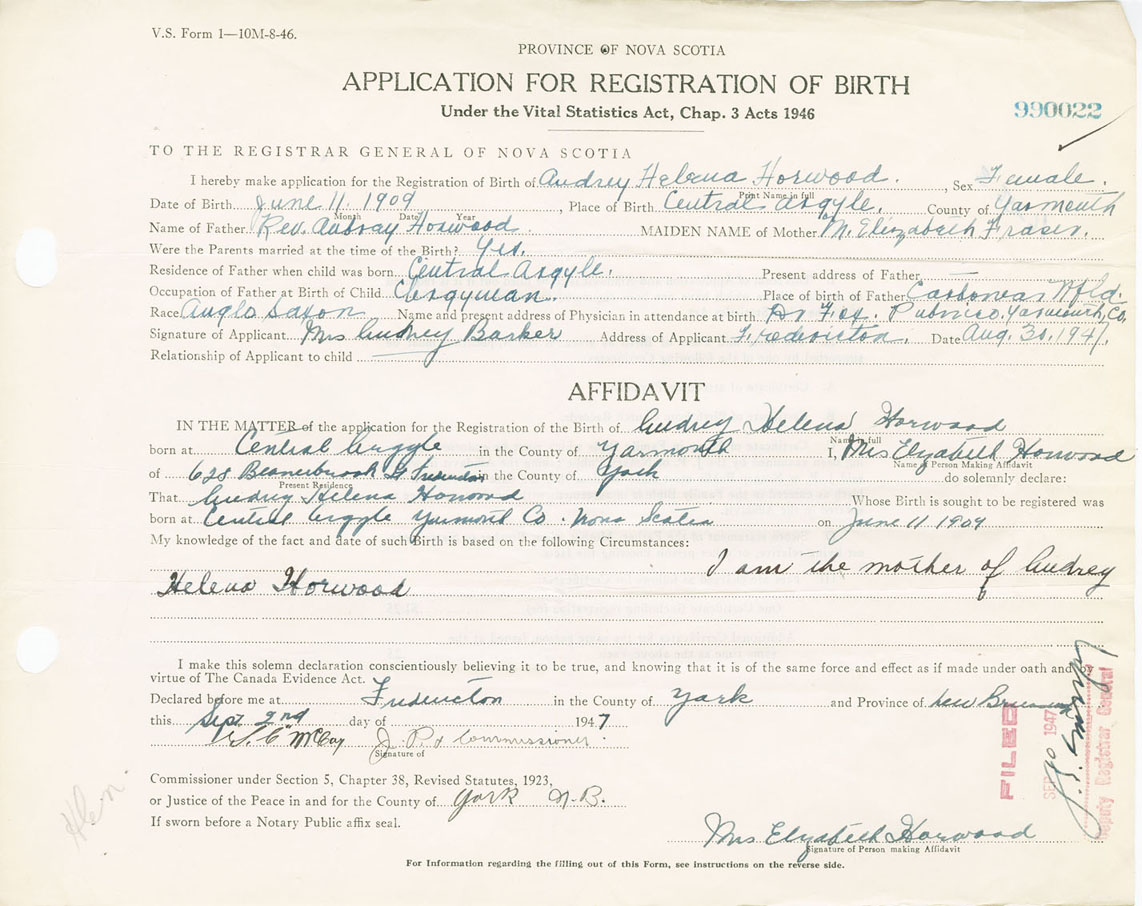 V.S. Form 1—10M-8-46.
PROVINCE OF NOVA SCOTIA
APPLICATION FOR REGISTRATION OF BIRTH
Under the Vital Statistics Act, Chap. 3 Acts 1946
990022
TO THE REGISTRAR GENERAL OF NOVA SCOTIA
I hereby make application for the Registration of Birth of Audrey Helena Horwood. , Sex Female.
Print Name in full
Date of Birth June 11, 1909 , Place of Birth Central Argyle. County of Yarmouth
Month Date Year
Name of Father Rev. Aubray Horwood. MAIDEN NAME of Mother M. Elizabeth Fraser.
Were the Parents married at time of the Birth? Yes.
Residence of Father when child was born Central Argyle. Present address of Father —
Occupation of Father at Birth of Child Clergyman. Place of birth of Father Carbonear Nfld.
Race Anglo Saxon Name and present address of Physician in attendance at birth Dr Fox. Pubnico. Yarmouth, Co.
Signature of Applicant Mrs Audrey Barker Address of Applicant Fredericton. Date Aug. 30, 1947.
Relationship of Applicant to child
AFFIDAVIT
IN THE MATTER of the application for the Registration of the Birth of Audrey Helena Horwood
Name in full
born at Central Argyle in the County of Yarmouth I, Mrs Elyabeth Horwood
Name of Person Making Affidavit
of 628 Beaverbrook St Fredericton in the County of York do solemnly declare:
Present Residence
That Audrey Helena Horwood Whose Birth is sought to be registered was
born at Central Argyle Yarmouth Co. Nova Scotia on June 11 1909
My knowledge of the fact and date of such Birth is based on the following Circumstances:
I am the mother of Audrey
Helena Horwood
I make this solemn declaration conscientiously believing it to be true, and knowing that it is of the same force and effect as if made under oath and by
virtue of The Canada Evidence Act.
Declared before me at Fredericton in the County of York and Province of New Brunswick
this Sept. 2nd day of 1947
McCoy J. P. & Commissioner.
Signature of
Commissioner under Section 5, Chapter 38, Revised Statutes, 1923,
or Justice of the Peace in and for the County of York N.B.
If sworn before a Notary Public affix seal.
Mrs Elyabeth Horwood
Signature of Person making Affidavit
For Information regarding the filling out of this Form, see instructions on the reverse side.
FILED
SEP 1947
Deputy Registrar General